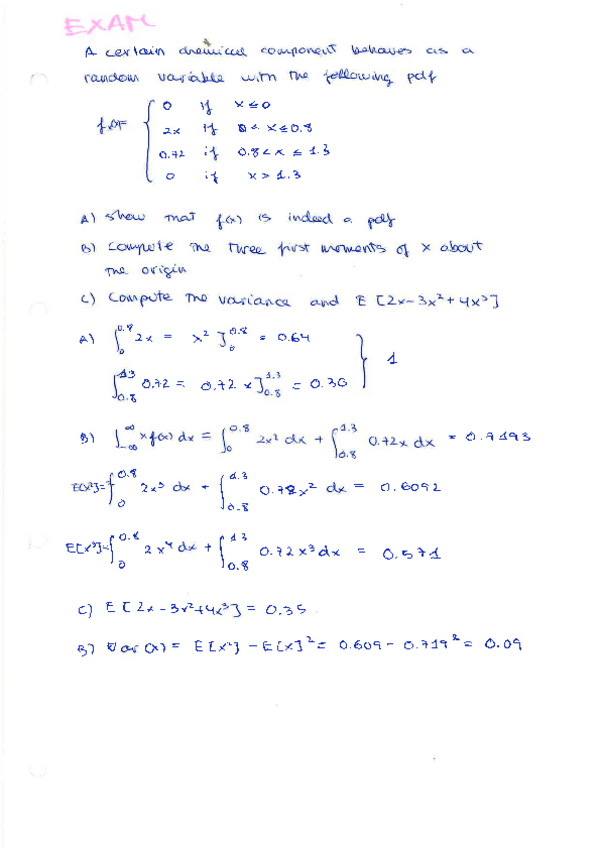 EXAM
A certain chemical component behaves as a
random variable with the following pdf
f(x)= { 0 if x ≤ 0
2x if 0 < x ≤ 0.8
0.72 if 0.8 < x ≤ 1.3
0 if x > 1.3
A) Show that f(x) is indeed a pdf
B) Compute the three first moments of x about
the origin
C) Compute the variance and E [2x-3x²+4x³]
A) ∫₀^0.8 2x = x² ]₀^0.8 = 0.64
∫_0.8^1.3 0.72 = 0.72 x ]_0.8^1.3 = 0.36 } 1
B) ∫_-∞^∞ x f(x) dx = ∫₀^0.8 2x² dx + ∫_0.8^1.3 0.72x dx = 0.7193
E[x²]= ∫₀^0.8 2x³ dx + ∫_0.8^1.3 0.72x² dx = 0.6092
E[x³]= ∫₀^0.8 2x⁴ dx + ∫_0.8^1.3 0.72x³ dx = 0.571
C) E [2x-3x²+4x³] = 0.35
B) Var(x) = E[x²] - E[x]² = 0.609 - 0.719² = 0.09